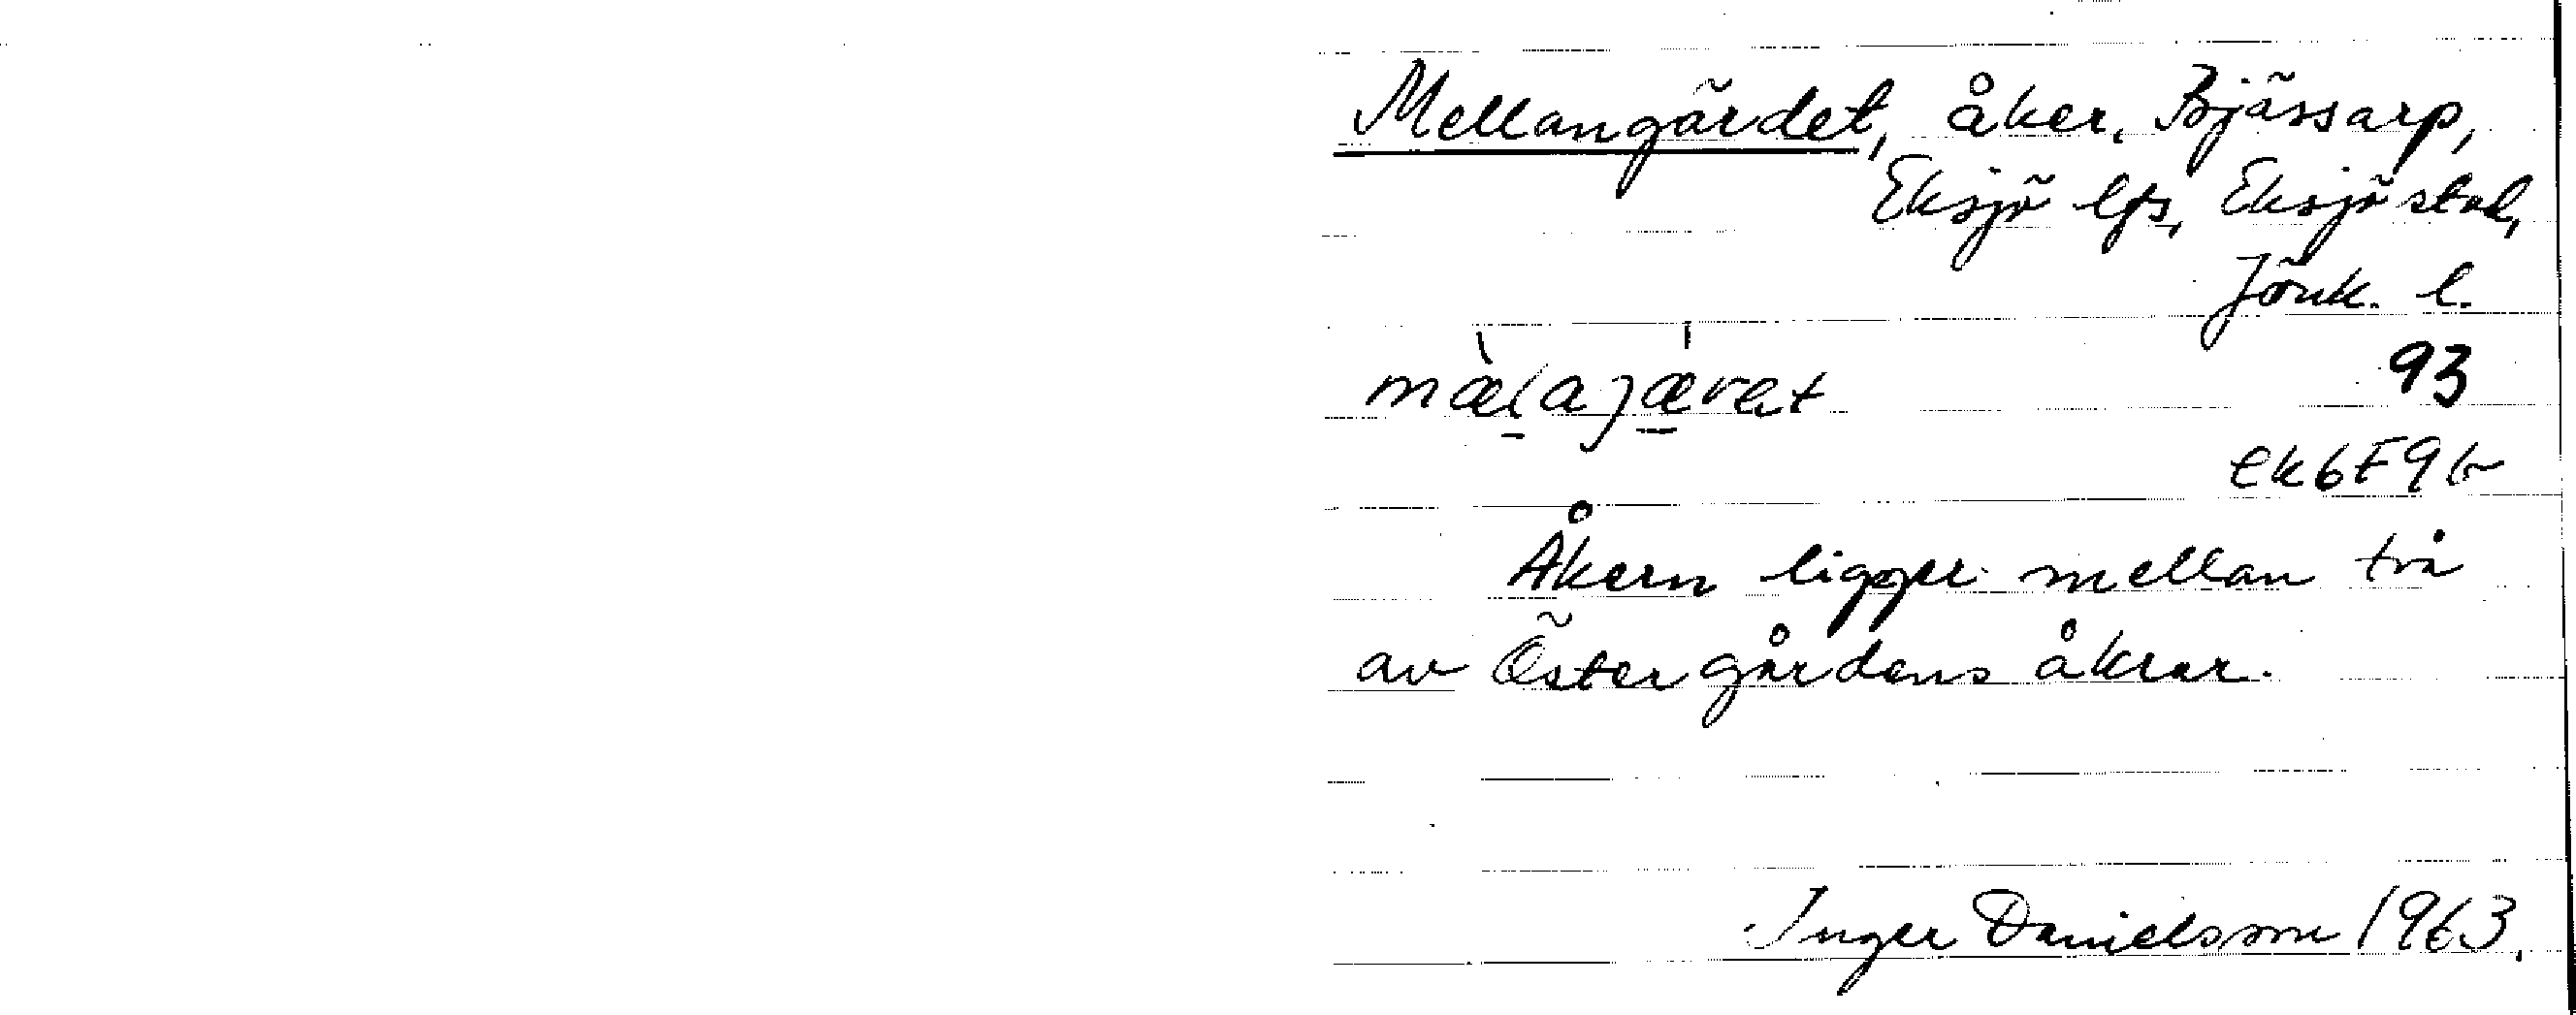 Mellangärdet, åker, Bjässarp,
Eksjö lfs, Eksjö stad,
Jönk. l.
mæ̀lajæ̍ret
93
ek6F9b
Åkern ligger mellan två
av Östergårdens åkrar.
Inger Danielsson 1963.